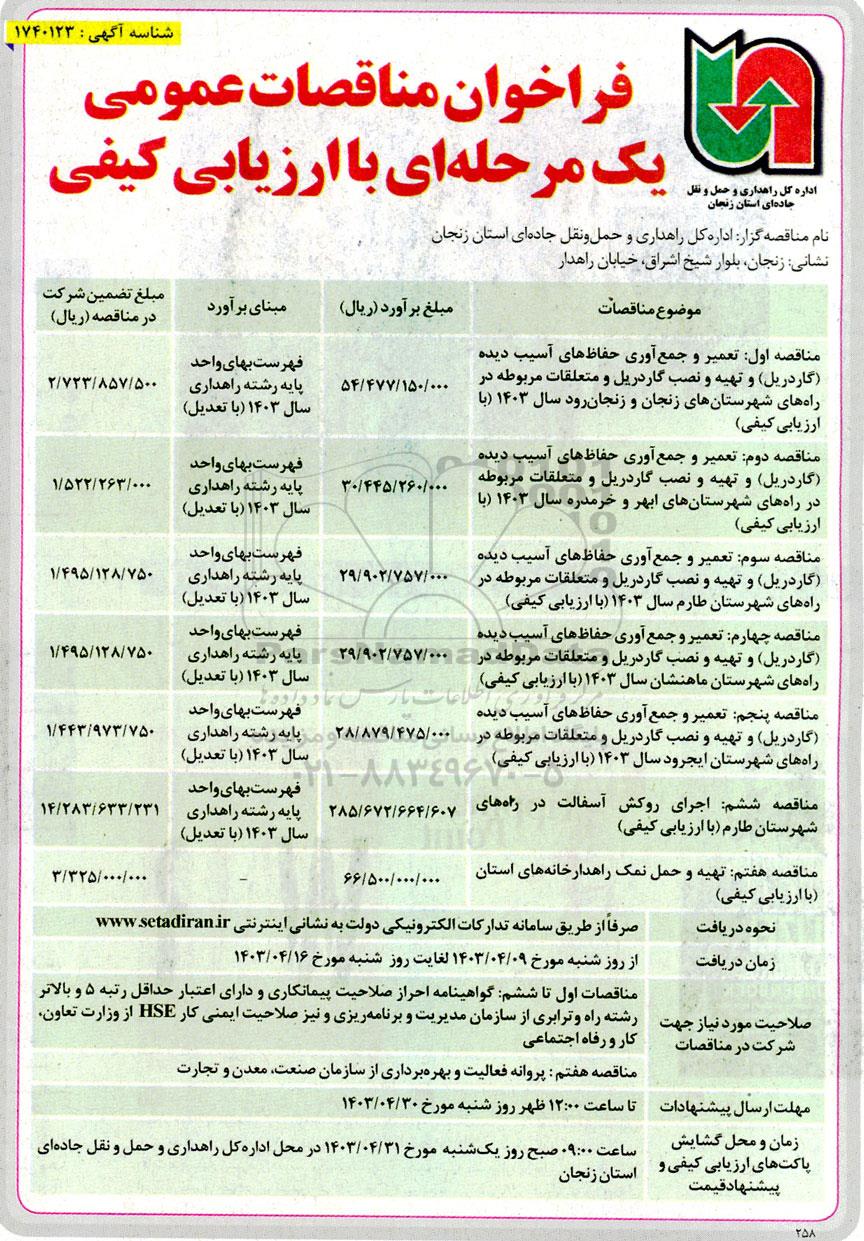 شناسه آگهی : ۱۷۴۰۱۲۳
فراخوان مناقصات عمومی
یک مرحله‌ای با ارزیابی کیفی
اداره کل راهداری و حمل و نقل
جاده‌ای استان زنجان
نام مناقصه‌گزار: اداره‌کل راهداری و حمل‌ونقل جاده‌ای استان زنجان
نشانی: زنجان، بلوار شیخ اشراق، خیابان راهدار
موضوع مناقصات
مبلغ برآورد (ریال)
مبنای برآورد
مبلغ تضمین شرکت
در مناقصه (ریال)
مناقصه اول: تعمیر و جمع‌آوری حفاظ‌های آسیب دیده
(گاردریل) و تهیه و نصب گاردریل و متعلقات مربوطه در
راه‌های شهرستان‌های زنجان و زنجان‌رود سال ۱۴۰۳ (با
ارزیابی کیفی)
۵۴/۴۷۷/۱۵۰/۰۰۰
فهرست‌بهای‌واحد
پایه رشته راهداری
سال ۱۴۰۳ (با تعدیل)
۲/۷۲۳/۸۵۷/۵۰۰
مناقصه دوم: تعمیر و جمع‌آوری حفاظ‌های آسیب دیده
(گاردریل) و تهیه و نصب گاردریل و متعلقات مربوطه
در راه‌های شهرستان‌های ابهر و خرمدره سال ۱۴۰۳ (با
ارزیابی کیفی)
۳۰/۴۴۵/۲۶۰/۰۰۰
فهرست‌بهای‌واحد
پایه رشته راهداری
سال ۱۴۰۳ (با تعدیل)
۱/۵۲۲/۲۶۳/۰۰۰
مناقصه سوم: تعمیر و جمع‌آوری حفاظ‌های آسیب دیده
(گاردریل) و تهیه و نصب گاردریل و متعلقات مربوطه در
راه‌های شهرستان طارم سال ۱۴۰۳ (با ارزیابی کیفی)
۲۹/۹۰۲/۷۵۷/۰۰۰
فهرست‌بهای‌واحد
پایه رشته راهداری
سال ۱۴۰۳ (با تعدیل)
۱/۴۹۵/۱۲۸/۷۵۰
مناقصه چهارم: تعمیر و جمع‌آوری حفاظ‌های آسیب دیده
(گاردریل) و تهیه و نصب گاردریل و متعلقات مربوطه در
راه‌های شهرستان ماهنشان سال ۱۴۰۳ (با ارزیابی کیفی)
۲۹/۹۰۲/۷۵۷/۰۰۰
فهرست‌بهای‌واحد
پایه رشته راهداری
سال ۱۴۰۳ (با تعدیل)
۱/۴۹۵/۱۲۸/۷۵۰
مناقصه پنجم: تعمیر و جمع‌آوری حفاظ‌های آسیب دیده
(گاردریل) و تهیه و نصب گاردریل و متعلقات مربوطه در
راه‌های شهرستان ایجرود سال ۱۴۰۳ (با ارزیابی کیفی)
۲۸/۸۷۹/۴۷۵/۰۰۰
فهرست‌بهای‌واحد
پایه رشته راهداری
سال ۱۴۰۳ (با تعدیل)
۱/۴۴۳/۹۷۳/۷۵۰
مناقصه ششم: اجرای روکش آسفالت در راه‌های
شهرستان طارم (با ارزیابی کیفی)
۲۸۵/۶۷۲/۶۶۴/۶۰۷
فهرست‌بهای‌واحد
پایه رشته راهداری
سال ۱۴۰۳ (با تعدیل)
۱۴/۲۸۳/۶۳۳/۲۳۱
مناقصه هفتم: تهیه و حمل نمک راهدارخانه‌های استان
(با ارزیابی کیفی)
۶۶/۵۰۰/۰۰۰/۰۰۰
–
۳/۳۲۵/۰۰۰/۰۰۰
نحوه دریافت
صرفاً از طریق سامانه تدارکات الکترونیکی دولت به نشانی اینترنتی www.setadiran.ir
زمان دریافت
از روز شنبه مورخ ۱۴۰۳/۰۴/۰۹ لغایت روز شنبه مورخ ۱۴۰۳/۰۴/۱۶
صلاحیت مورد نیاز جهت
شرکت در مناقصات
مناقصات اول تا ششم: گواهینامه احراز صلاحیت پیمانکاری و دارای اعتبار حداقل رتبه ۵ و بالاتر
رشته راه و ترابری از سازمان مدیریت و برنامه‌ریزی و نیز صلاحیت ایمنی کار HSE از وزارت تعاون،
کار و رفاه اجتماعی
مناقصه هفتم : پروانه فعالیت و بهره‌برداری از سازمان صنعت، معدن و تجارت
مهلت ارسال پیشنهادات
تا ساعت ۱۲:۰۰ ظهر روز شنبه مورخ ۱۴۰۳/۰۴/۳۰
زمان و محل گشایش
پاکت‌های ارزیابی کیفی و
پیشنهاد قیمت
ساعت ۰۹:۰۰ صبح روز یک‌شنبه مورخ ۱۴۰۳/۰۴/۳۱ در محل اداره‌کل راهداری و حمل و نقل جاده‌ای
استان زنجان
۰۲۱-۸۸۳۴۹۶۷۰-۵
۲۵۸